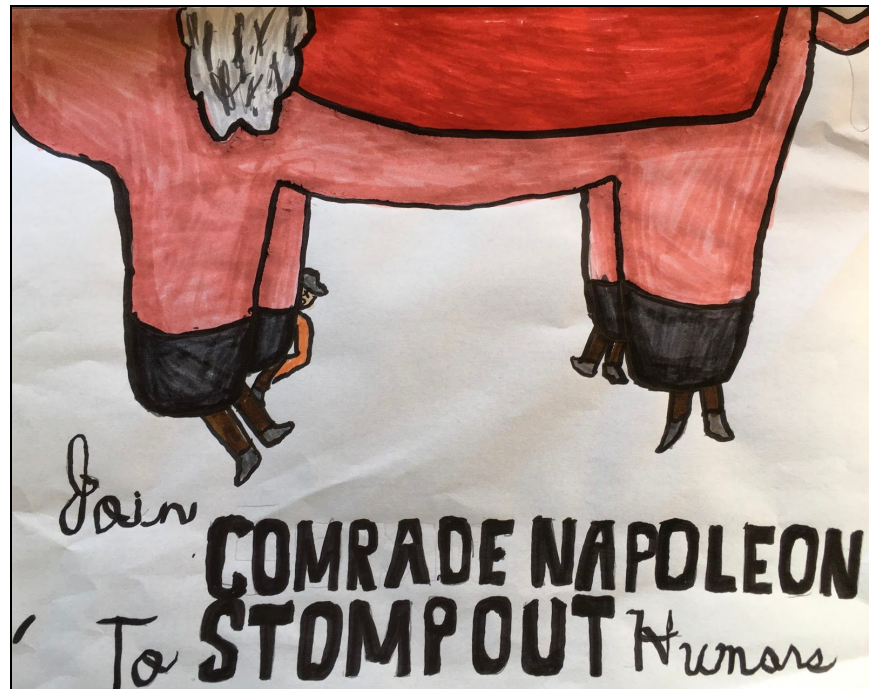 Join COMRADE NAPOLEON
To STOMP OUT Humans